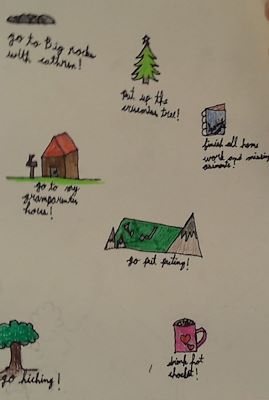 go to Big rocks
with cathrin!
put up the
crismis tree!
finish all home
work and missing
asiments!
go to my
granparents
hous!
go put puting!
go hiching!
drink hot
choclet!